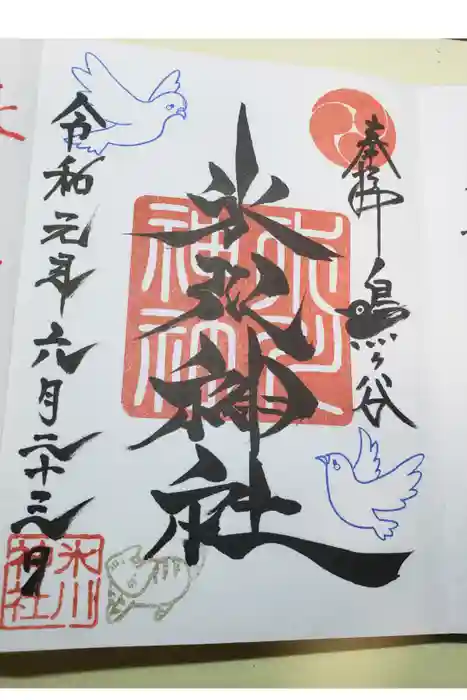 奉拝 鳩ヶ谷
氷川神社
氷川
神社
令和元年六月二十三日
氷川
神社